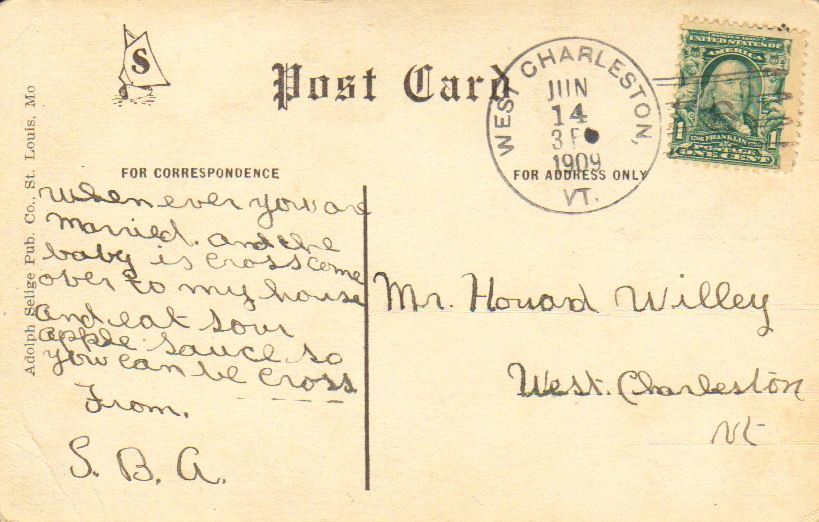 S
Post Card
WEST CHARLESTON,
JUN
14
3P
1909
VT.
UNITED STATES OF
AMERICA
1 1
FRANKLIN
POSTAGE
ONE CENT
FOR CORRESPONDENCE
FOR ADDRESS ONLY
Adolph Selige Pub. Co., St. Louis, Mo
When ever you are
married. and the
baby is cross come
over to my house
and eat sour
apple sauce so
you can be cross
From,
S. B. A.
Mr. Houard Willey
West. Charleston
Vt